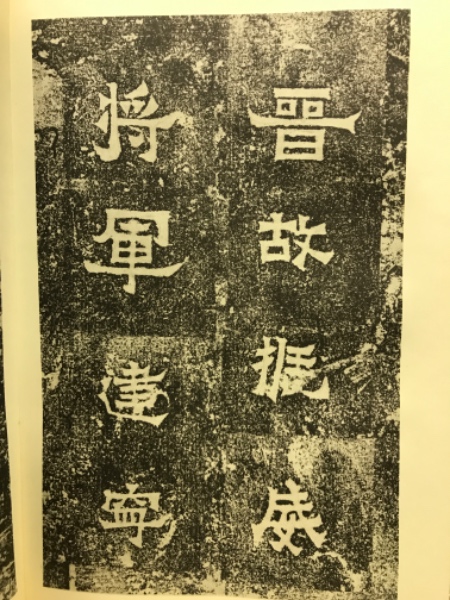 晋故振威
將軍建寧